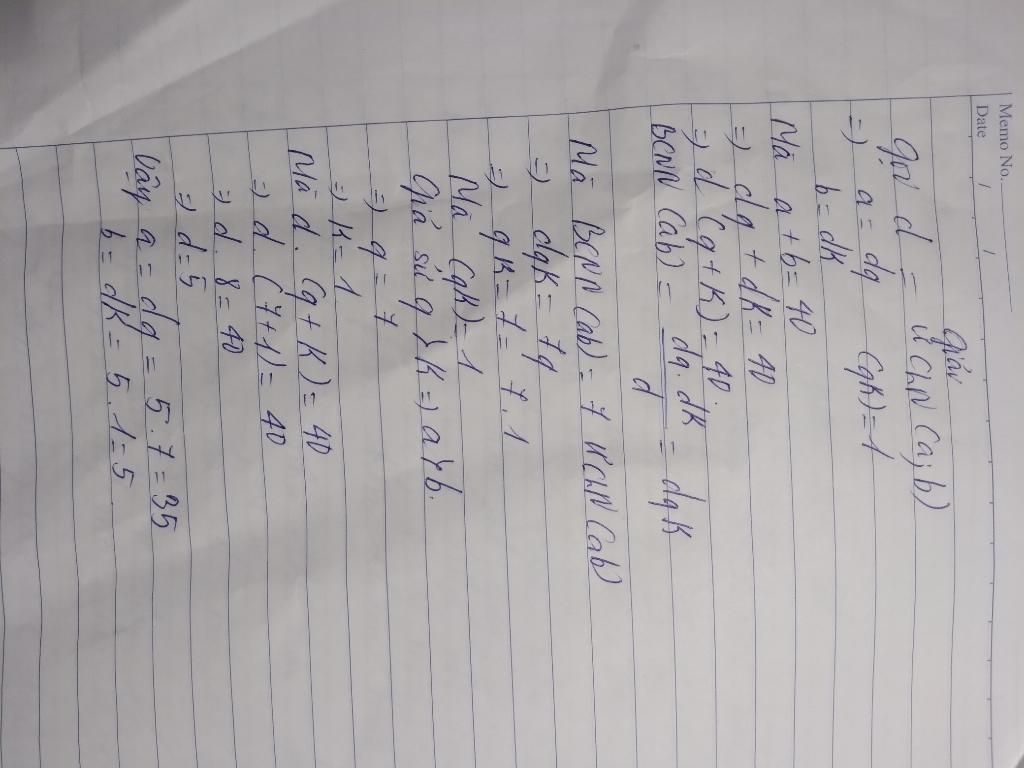 Memo No.
Date / /
Giải
Gọi d = ƯCLN (a;b)
=) a = dq (qk)=1
b = dk
Mà a + b = 40
=) dq + dk = 40
=) d (q+k) = 40.
BCNN (ab) = dq.dk / d = dqk
Mà BCNN (ab) = 7 ƯCLN (ab)
=) dqk = 7d
=) qk = 7 = 7.1
Mà (qk) = 1
Giả sử q > k =) a > b.
=) q = 7
=) k = 1
Mà d. (q + k) = 40
=) d. (7+1) = 40
=) d. 8 = 40
=) d = 5
Vậy a = dq = 5.7 = 35
b = dk = 5.1 = 5